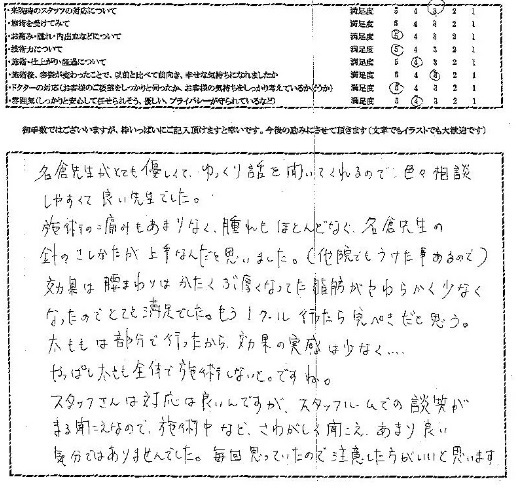 ・来院時のスタッフの対応について 満足度 5 4 3 2 1
・施術を受けてみて 満足度 5 4 3 2 1
・お痛み・腫れ・内出血などについて 満足度 5 4 3 2 1
・技術力について 満足度 5 4 3 2 1
・施術・仕上がり・経過について 満足度 5 4 3 2 1
・施術後、容姿が変わったことで、以前と比べて前向き、幸せな気持ちになれましたか 満足度 5 4 3 2 1
・ドクターの対応(お客様のご要望をしっかりと伺ったか、お客様の気持ちをしっかり考えているかどうか) 満足度 5 4 3 2 1
・雰囲気(しっかりと安心して任せられそう、優しい、プライバシーが守られているなど) 満足度 5 4 3 2 1
御手数ではございますが、枠いっぱいにご記入頂けますと幸いです。今後の励みにさせて頂きます(文章でもイラストでも大歓迎です)
名倉先生がとても優しくて、ゆっくり話を聞いてくれるので、色々相談
しやすくて良い先生でした。
施術の痛みもあまりなく、腫れもほとんどなく、名倉先生の
針のさしかたが上手なんだと思いました。(他院でもうけた事あるので)
効果は腰まわりはかたくぶ厚くなってた脂肪がやわらかく少なく
なったのでとても満足でした。もう1クール行ったら完ぺきだと思う。
太ももは部分で行ったから、効果の実感は少なく....
やっぱし太もも全体で施術しないと。ですね。
スタッフさんは対応は良いんですが、スタッフルームでの談笑が
まる聞こえなので、施術中など、さわがしく聞こえ、あまり良い
気分ではありませんでした。毎回思っていたので注意した方がいいと思います